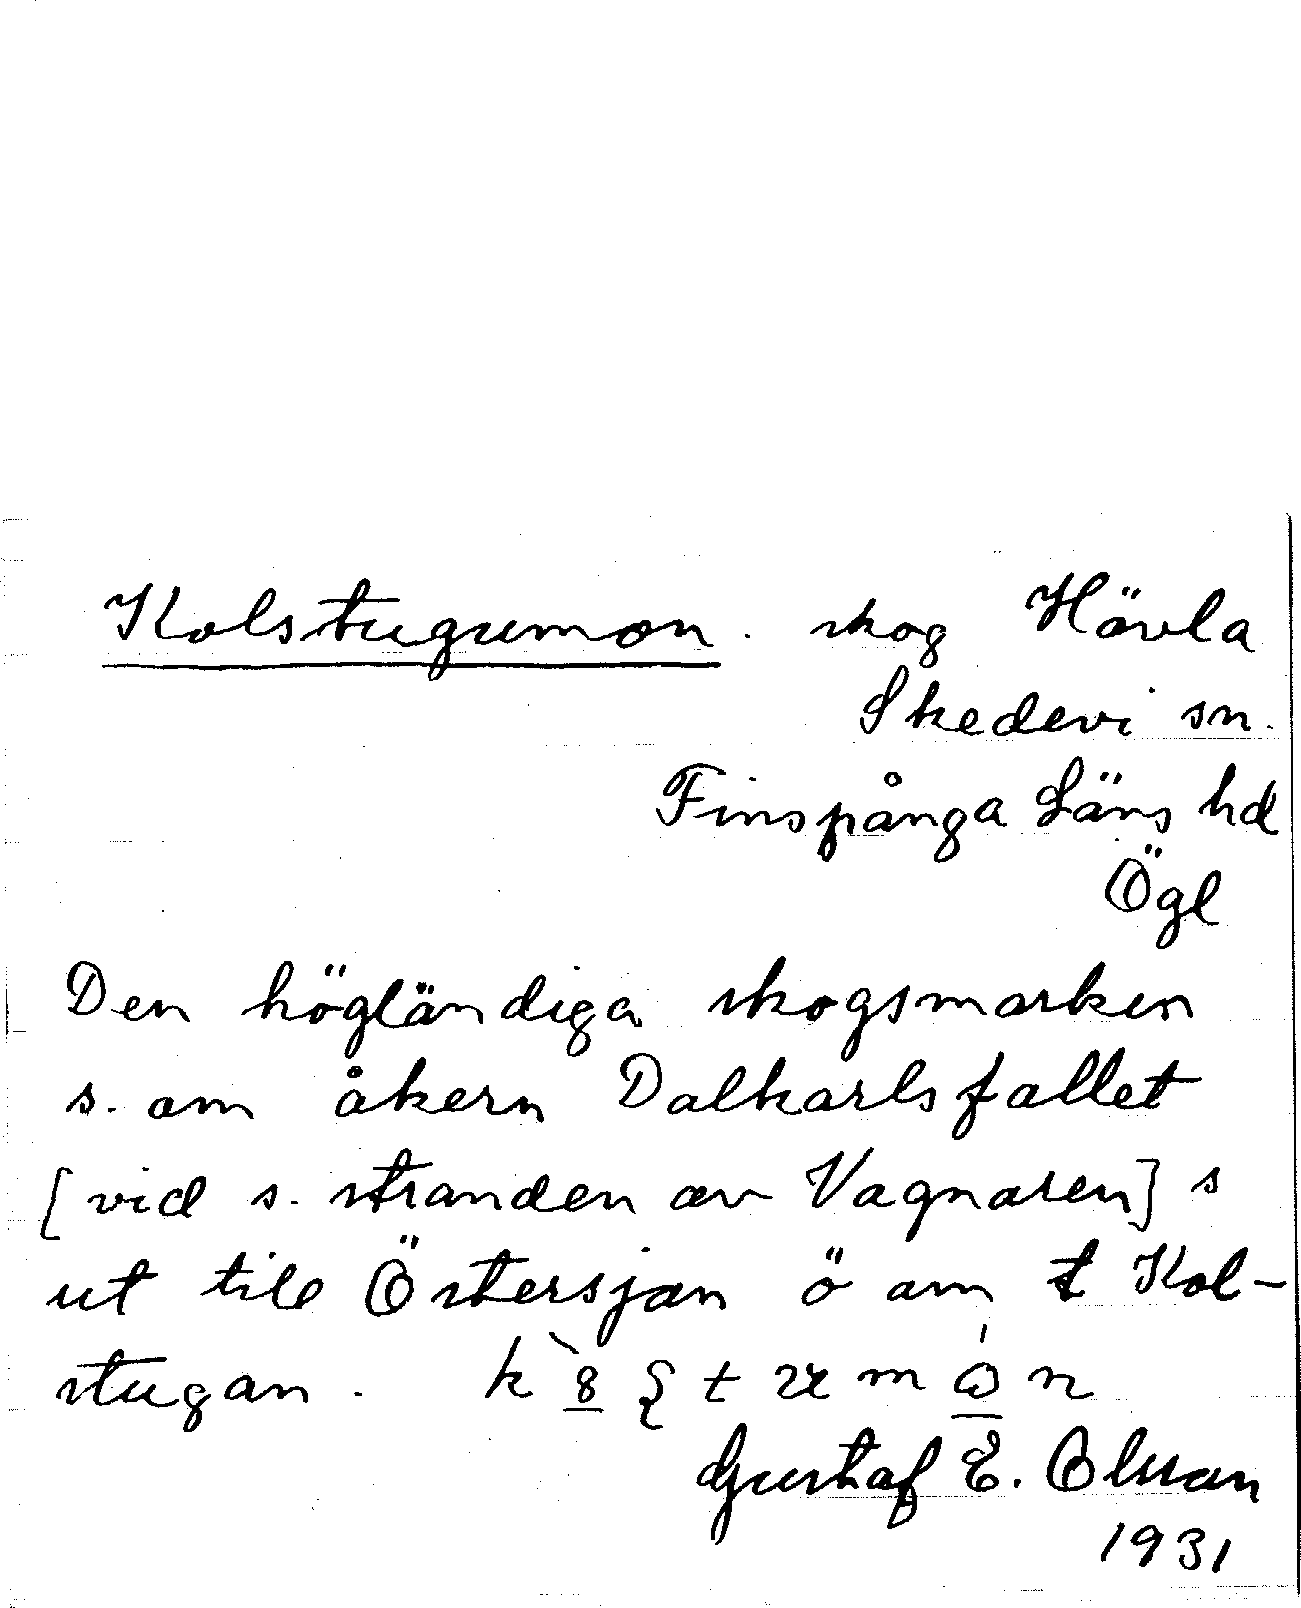 Kolstugumon. skog Hävla
Skedevi sn.
Finspånga Läns hd
Ögl
Den högländiga skogsmarken
s. om åkern Dalkarlsfallet
[vid s. stranden av Vagnaren] s
ut till Östersjön ö om t Kol-
stugan.
Gustaf E. Olsson
1931